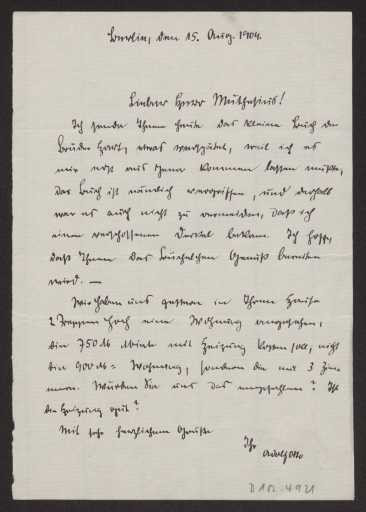 Berlin, den 15. Aug. 1904.
Lieber Herr Muthesius!
Ich sende Ihnen heute das kleine Buch der
Brüder Hart, etwas verspätet, weil ich es
mir erst aus Jena kommen lassen mußte,
das Buch ist nämlich vergriffen, und deshalb
war es auch nicht zu vermeiden, daß ich
einen verschossenen Deckel bekam. Ich hoffe,
daß Ihnen das Büchelchen Genuß bereiten
wird. —
Wir haben uns gestern in Ihrem Hause
2 Treppen hoch eine Wohnung angesehen,
die 750 M Miete mit Heizung kosten soll, nicht
die 900 M = Wohnung, sondern die mit 3 Zim
mern. Würden Sie uns das empfehlen? Ist
die Heizung gut?
Mit sehr herzlichem Gruße
Ihr
Adolf Otto
D 102-4921